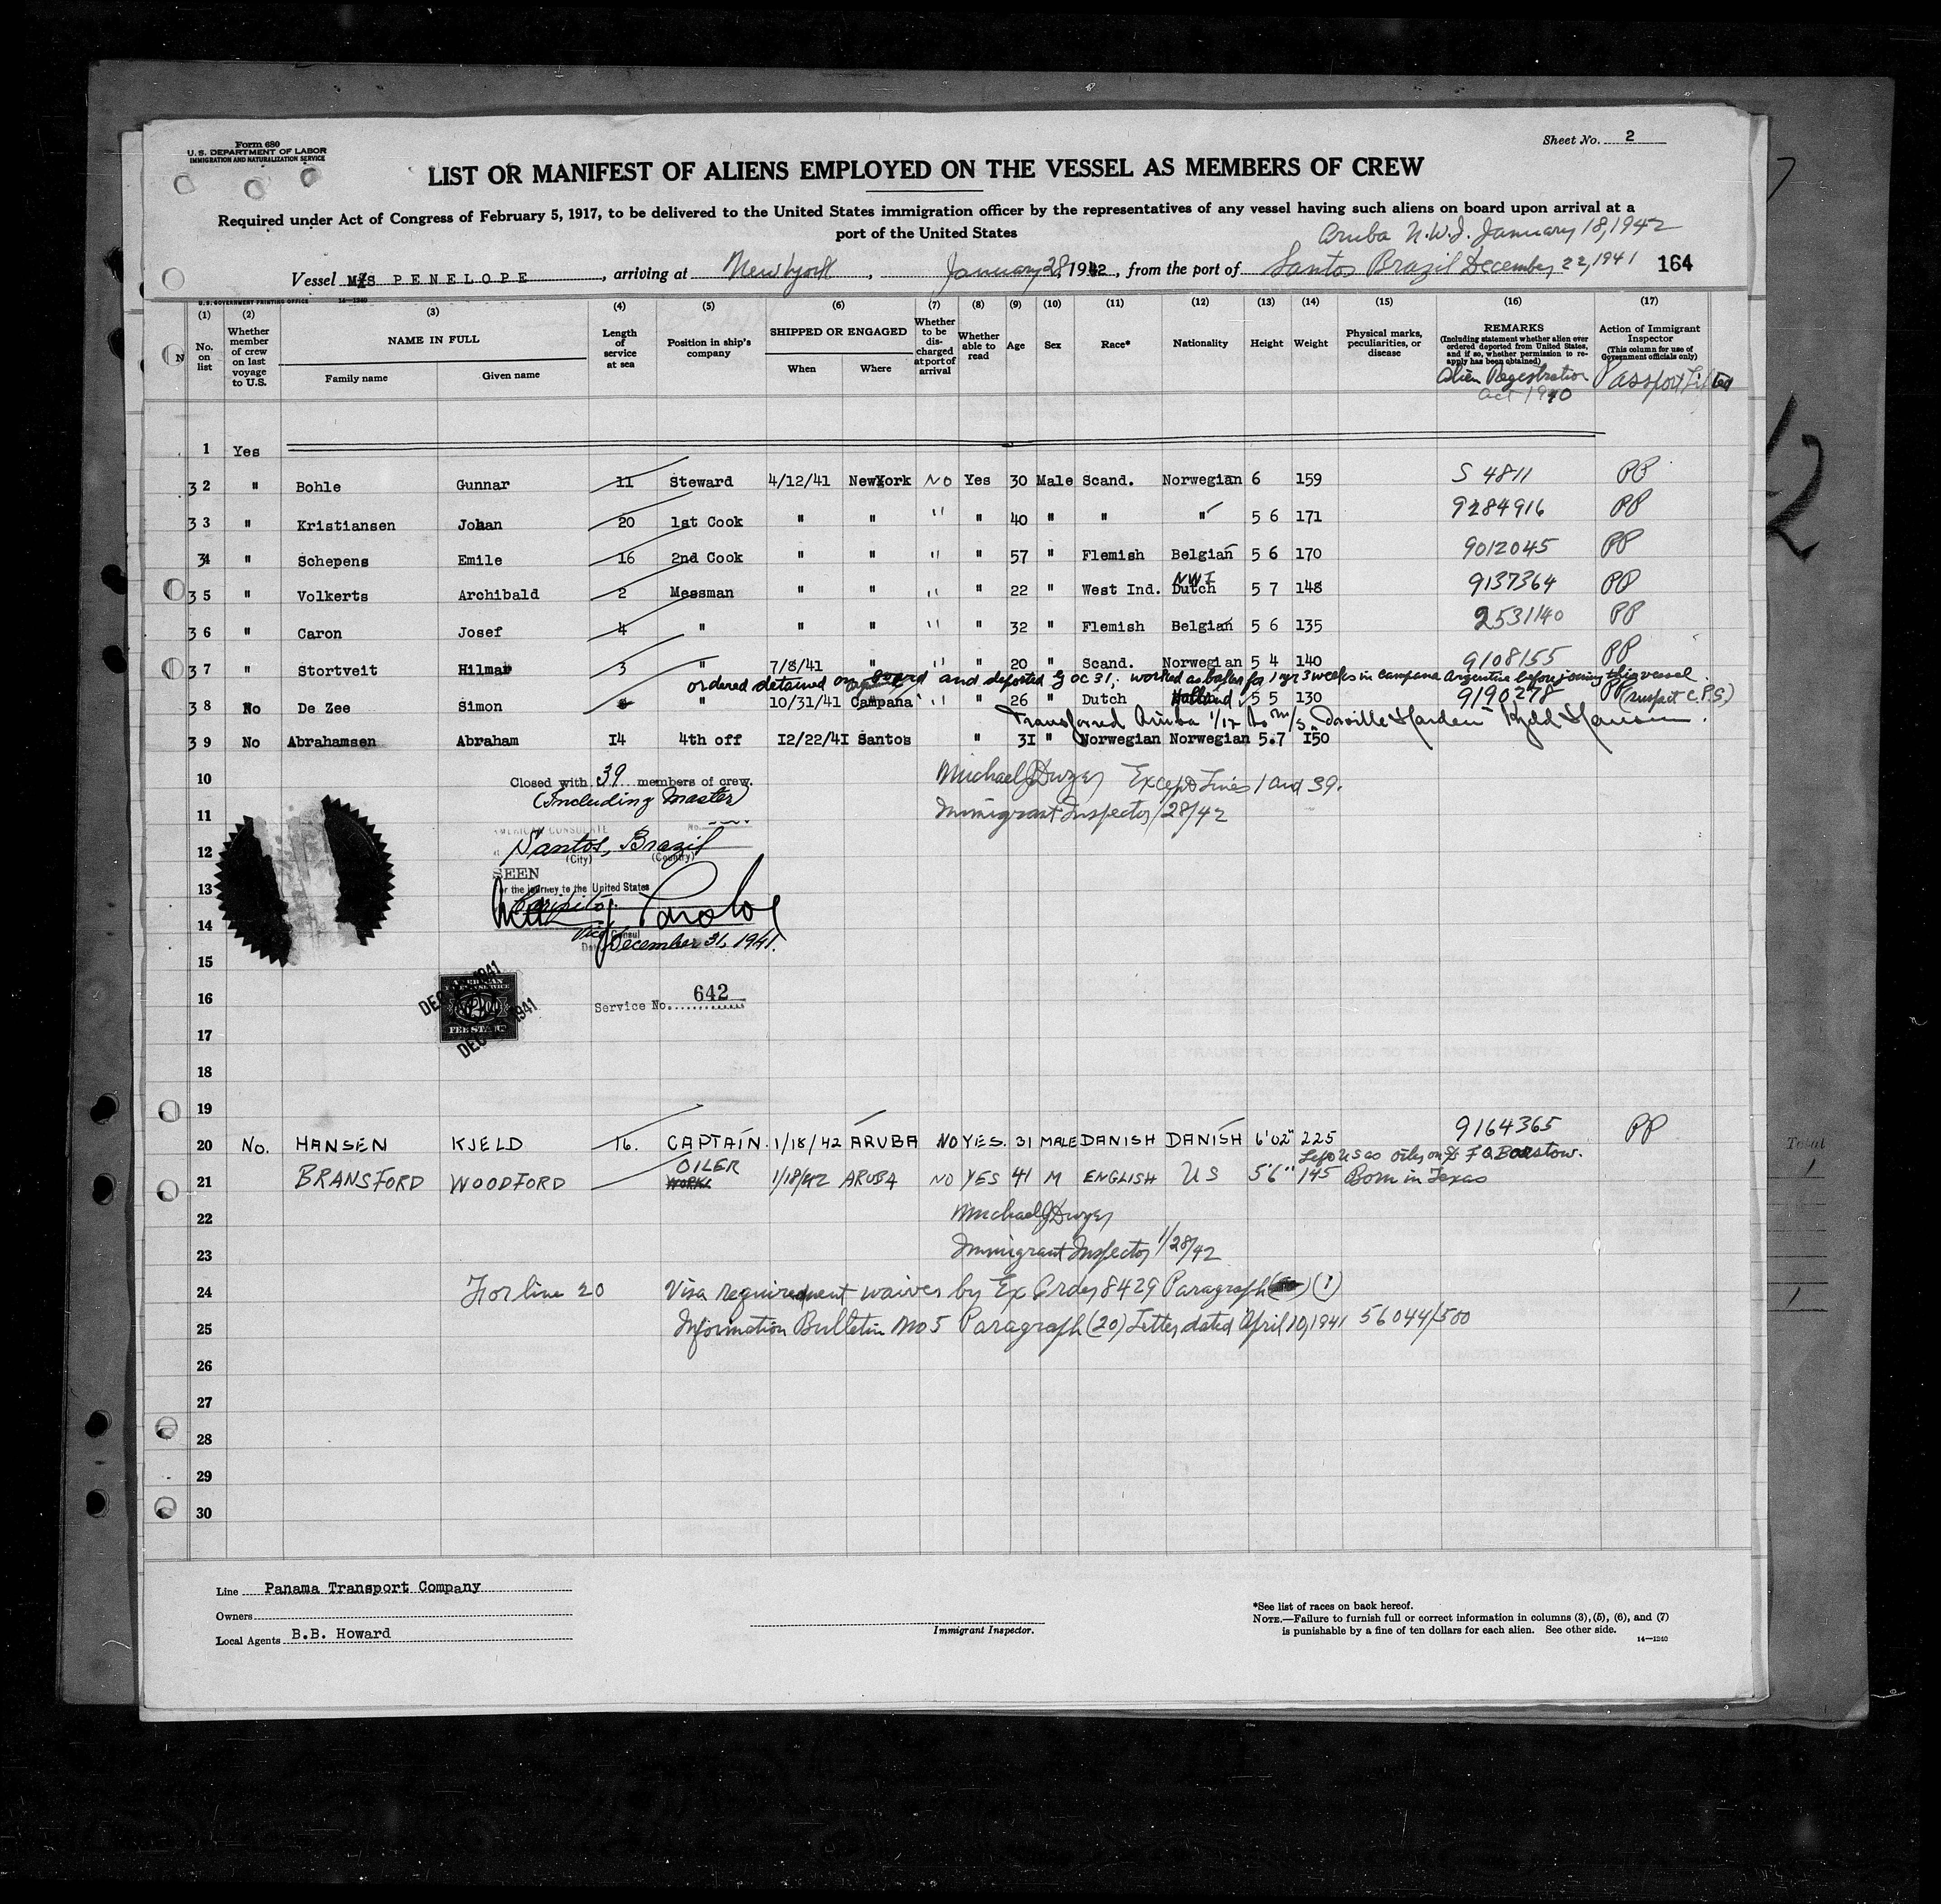 Form 680
U. S. DEPARTMENT OF LABOR
IMMIGRATION AND NATURALIZATION SERVICE
Sheet No. 2
LIST OR MANIFEST OF ALIENS EMPLOYED ON THE VESSEL AS MEMBERS OF CREW
Required under Act of Congress of February 5, 1917, to be delivered to the United States immigration officer by the representatives of any vessel having such aliens on board upon arrival at a
port of the United States
Aruba N.W.I. January 18, 1942
Vessel M/S PENELOPE, arriving at New York, January 28, 1942, from the port of Santos Brazil December 22, 1941 164
U. S. GOVERNMENT PRINTING OFFICE 14—1240
(1) (2) (3) (4) (5) (6) (7) (8) (9) (10) (11) (12) (13) (14) (15) (16) (17)
No. on list
Whether member of crew on last voyage to U.S.
NAME IN FULL
Family name Given name
Length of service at sea
Position in ship's company
SHIPPED OR ENGAGED
When Where
Whether to be discharged at port of arrival
Whether able to read
Age
Sex
Race*
Nationality
Height
Weight
Physical marks, peculiarities, or disease
REMARKS
(Including statement whether alien ever ordered deported from United States, and if so, whether permission to reapply has been obtained)
Alien Registration
Act 1940
Action of Immigrant Inspector
(This column for use of Government officials only)
Passport Lifted
1 Yes
32 " Bohle Gunnar 11 Steward 4/12/41 NewYork No Yes 30 Male Scand. Norwegian 6 159 S 4811 PP
33 " Kristiansen Johan 20 1st Cook " " " " 40 " " " 5 6 171 9284916 PP
34 " Schepens Emile 16 2nd Cook " " " " 57 " Flemish Belgian 5 6 170 9012045 PP
NWI
35 " Volkerts Archibald 2 Messman " " " " 22 " West Ind. Dutch 5 7 148 9137364 PP
36 " Caron Josef 4 " " " " " 32 " Flemish Belgian 5 6 135 2531140 PP
37 " Stortveit Hilmar 3 " 7/8/41 " " " 20 " Scand. Norwegian 5 4 140 9108155 PP
ordered detained on board and deported worked as for 1 yr 3 weeks in Campana Argentine before joining this vessel
38 No De Zee Simon " 10/31/41 Campana " " 26 " Dutch Holland 5 5 130 9190278 PP
Transferred Aruba 1/17 to M/S Harden
39 No Abrahamsen Abraham I4 4th off I2/22/4I Santos " 3I " Norwegian Norwegian 5.7 I50
10 Closed with 39 members of crew. Michael J Dwyer Except Lines 1 and 39.
(Including Master)
11 Immigrant Inspector 1/28/42
AMERICAN CONSULATE No.
12 Santos, Brazil
(City) (Country)
SEEN
13 for the journey to the United States
14
Vice Consul
December 31, 1941.
15
AMERICAN
FEE STAMP
DEC 1941
16 Service No. 642
17
18
19
20 No. HANSEN KJELD 16. CAPTAIN. 1/18/42 ARUBA NO YES. 31 MALE DANISH DANISH 6'02" 225 9164365 PP
Left US as oiler on SS F Q Barstow.
OILER
21 BRANSFORD WOODFORD 1/18/42 ARUBA NO YES 41 M ENGLISH US 5'6" 145 Born in Texas
22 Michael J Dwyer
23 Immigrant Inspector 1/28/42
24 For line 20 Visa requirement waived by Ex Order 8429 Paragraph (1)
25 Information Bulletin No 5 Paragraph (20) Letter dated April 10, 1941 56044/500
26
27
28
29
30
Line Panama Transport Company
Owners
Local Agents B.B. Howard
Immigrant Inspector.
*See list of races on back hereof.
NOTE.—Failure to furnish full or correct information in columns (3), (5), (6), and (7)
is punishable by a fine of ten dollars for each alien. See other side.
14—1240
Total
1
1